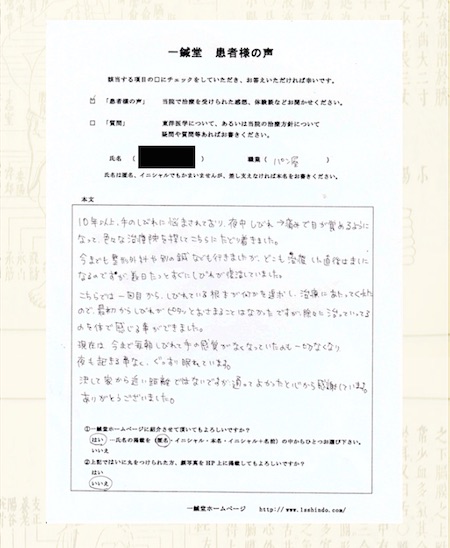 一鍼堂 患者様の声
該当する項目の□にチェックをしていただき、お答えいただければ幸いです。
☑ 「患者様の声」 当院で治療を受けられた感想、体験談などお聞かせください。
□ 「質問」 東洋医学について、あるいは当院の治療方針について
疑問や質問等あればお書きください。
氏名 ( ) 職業 ( パン屋 )
氏名は匿名、イニシャルでもかまいませんが、差し支えなければ本名をお書きください。
本文
10年以上、手のしびれに悩まされており、夜中しびれ→痛みで目が覚めるように
なって、色々な治療院を探してこちらにたどり着きました。
今までも整形外科や別の鍼なども行きましたが、どこも治療した直後はましに
なるのですが数日たつとすぐにしびれが復活していました。
こちらでは一回目から、しびれている根本が何かを追求し、治療にあたってくれた
ので、最初からしびれがピタッとおさまることはなかったですが、徐々に治っていってる
のを体で感じる事ができました。
現在は、今まで毎朝しびれて手の感覚がなくなっていたのも一切なくなり
夜も起きる事なく、ぐっすり眠れています。
決して家から近い距離ではないですが、通ってよかったと心から感謝しています。
ありがとうございました。
①一鍼堂ホームページに紹介させて頂いてもよろしいですか?
はい―氏名の掲載を(匿名・イニシャル・本名・イニシャル+名前)の中からひとつお選び下さい。
いいえ
②上記ではいに丸をつけられた方、顔写真をHP上に掲載してもよろしいですか?
はい
いいえ
一鍼堂ホームページ http://www.1sshindo.com/